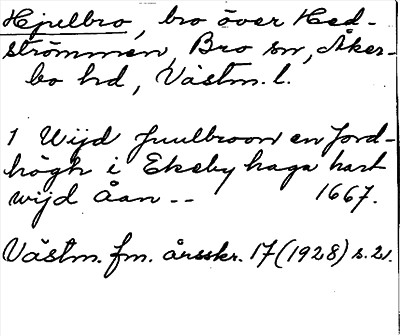 Hjulbro, bro över Hed-
strömmen, Bro sn, Åker-
bo hd, Västm. l.
1 Wijd Juulbroon en Jord-
högh i Ekeby haga hart
wijd Åan -- 1667.
Västm. fm. årsskr. 17 (1928) s. 21.